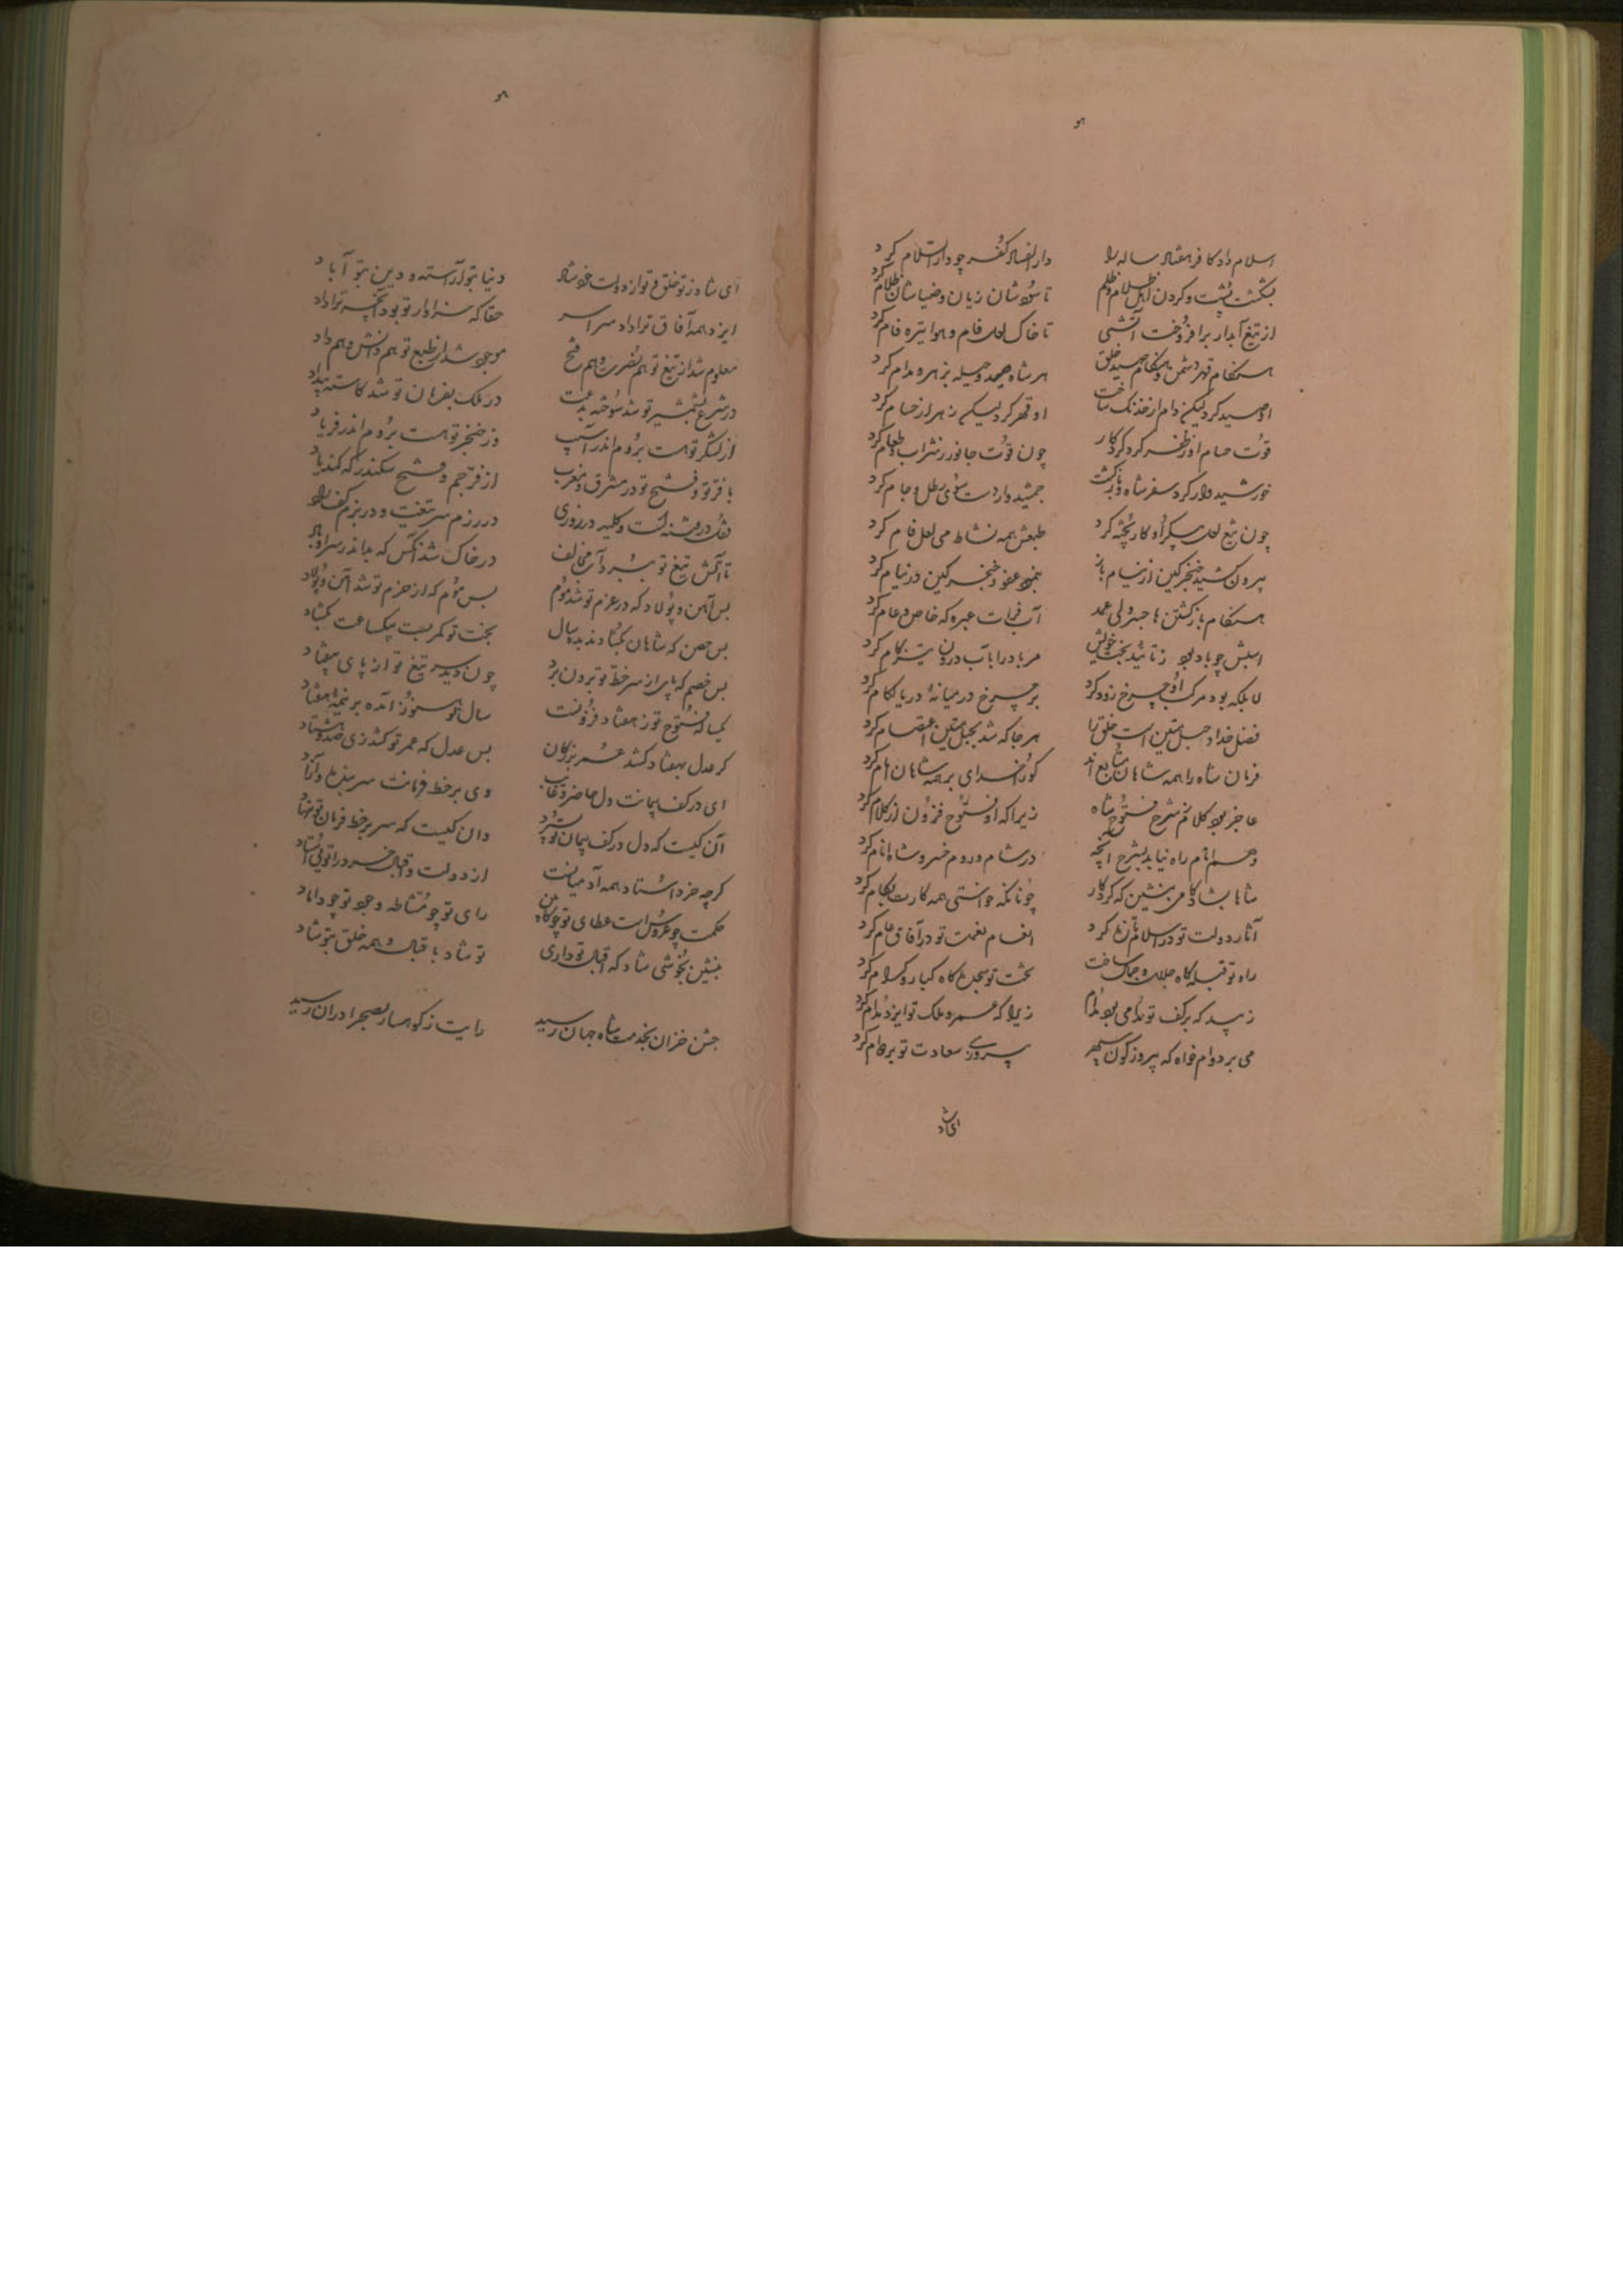 هو
اسلام داد کافر هفتاد ساله را دار الفساد کفر چو دار السلام کرد
بشکست پشت و گردن اهل ظلام و ظلم تا سودشان زیان و ضیاشان ظلام کرد
از تیغ آبدار برافروخت آتشی تا خاک لعل فام و هوا تیره فام کرد
هنگام قهر دشمن و هنگام صید خلق هر شاه صید و حیله بزهر و مدام کرد
او صید کرد لیکن دام از خدنگ ساخت او قهر کرد لیکن زهر از حسام کرد
قوت حسام او ز ظفر کرد کردکار چون قوت جانور ز شراب و طعام کرد
خورشیدوار کرد سفر شاه و بازگشت جمشیدوار دست سوی رطل و جام کرد
چون تیغ لعل پیکر او کار پخته کرد طبعش همه نشاط می لعل فام کرد
بیرون کشید خنجر کین از نیام باز بنمود عفو و خنجر کین در نیام کرد
هنگام بازگشتن ناجسته ولی عمد آب فرات عبره که خاص و عام کرد
اسبش چو باد بود ز تائید بخت خویش مر باد را بآب درون تیزکام کرد
لا بلکه بود مرکب او چرخ زودگرد بر چرخ در میانهٔ دریا لگام کرد
فضل خدا و حبل متین است خلق را هر جا که شد بحبل متین اعتصام کرد
فرمان شاه را همه شاهان متابع‌اند کو را خدای بر همه شاهان امام کرد
عاجز بود کلام ز شرح فتوح شاه زیرا که او فتوح فزون از کلام کرد
وهم انام راه نیابد بشرح آنچه در شام و روم خسرو شاه انام کرد
شاها بشادکامی بنشین که کردگار چونانکه خواستی همه کارت بکام کرد
آثار دولت تو در اسلام تازه کرد انعام نعمت تو در آفاق عام کرد
راه تو قبله گاه جلال و جمال ساخت تخت تو سجده گاه کبار و کرام کرد
زیبد که بر کف تو بود می مدام زیرا که عمر و ملک تو ایزد مدام کرد
می بر دوام خواه که پیروزه گون سپهر پیروزی و سعادت تو بر دوام کرد
ای شاد
هو
ای شاد ز تو خلق و تو از دولت خود شاد دنیا بتو آراسته و دین بتو آباد
ایزد همه آفاق ترا داد سراسر حقا که سزاوار تو بود آنچه ترا داد
معلوم شد از تیغ تو هم نصرت و هم فتح موجود شد از طبع تو هم دانش و هم داد
در شرع بشمشیر تو شد سوخته بدعت در ملک بفرمان تو شد کاسته بیداد
از لشکر تو هست بروم اندر آسیب وز خنجر تو هست بروم اندر فریاد
با فر تو و فتح تو در مشرق و مغرب از فر جم و فتح سکندر که کند یاد
قفل در فتنه است و کلید در روزی در رزم سر تیغت و در بزم کف راد
تا آتش تیغ تو ببرد آب مخالف در خاک شد آنکس که بد اندر سر او باد
بس آهن و پولاد که در عزم تو شد موم بس موم که از حزم تو شد آهن و پولاد
بس حصن که شاهان نگشادند بده سال بخت تو کمر بست بیکساعت بگشاد
بس خصم که پای از سر خط تو برون برد چون دید سر تیغ تو از پای بیفتاد
گیتی که فتوح تو ز هفتاد فزونست سال تو هنوز آمده بر نیمهٔ هفتاد
گر عدل بهفتاد کشد عمر بزرگان بس عدل که عمر تو کشد زی صد و هشتاد
ای در کف پیمانت دل حاضر و غایب وی بر خط فرمانت سر بنده و آزاد
آن کیست که دل در کف پیمان تو نسپرد وان کیست که سر بر خط فرمان تو ننهاد
گرچه خرد استاد همه آدمیانست از دولت و اقبال خرد را تویی استاد
حکمت چو عروس است عطای تو چو کابین رای تو چو مشاطه وجود تو چو داماد
بنشین بخوشی شاد که اقبال تو داری تو شاد باقبال و همه خلق بتو شاد
جشن خزان بخدمت شاه جهان رسید رایت ز کوهسار بصحرا دران رسید